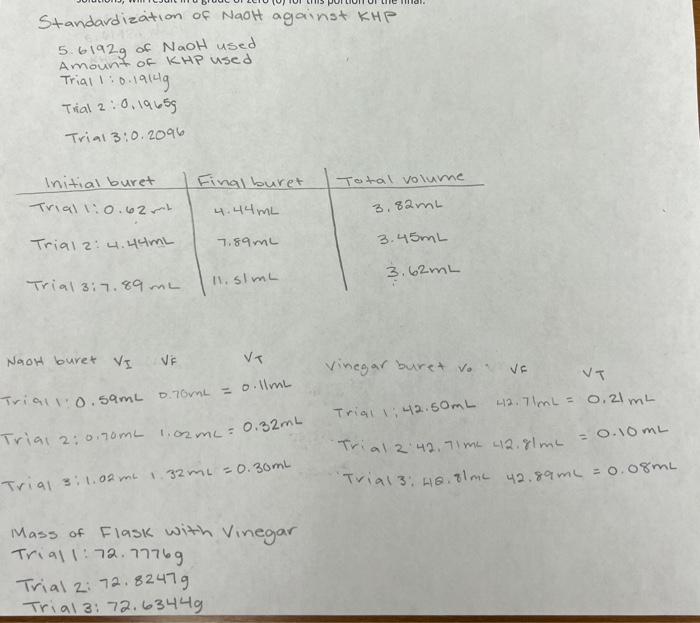 Standardization of NaOH against KHP
5.6192g of NaOH used
Amount of KHP used
Trial 1: 0.1914g
Trial 2: 0.1965g
Trial 3: 0.2096
Initial buret Final buret Total volume
Trial 1: 0.62 mL 4.44mL 3.82mL
Trial 2: 4.44mL 7.89mL 3.45mL
Trial 3: 7.89 mL 11.51mL 3.62mL
NaOH buret VI VF VT
Trial 1: 0.59mL 0.70mL = 0.11mL
Trial 2: 0.70mL 1.02mL = 0.32mL
Trial 3: 1.02mL 1.32mL = 0.30mL
Vinegar buret Vo VF VT
Trial 1: 42.50mL 42.71mL = 0.21mL
Trial 2: 42.71mL 42.81mL = 0.10mL
Trial 3: 42.81mL 42.89mL = 0.08mL
Mass of Flask with Vinegar
Trial 1: 72.7776g
Trial 2: 72.8247g
Trial 3: 72.6344g